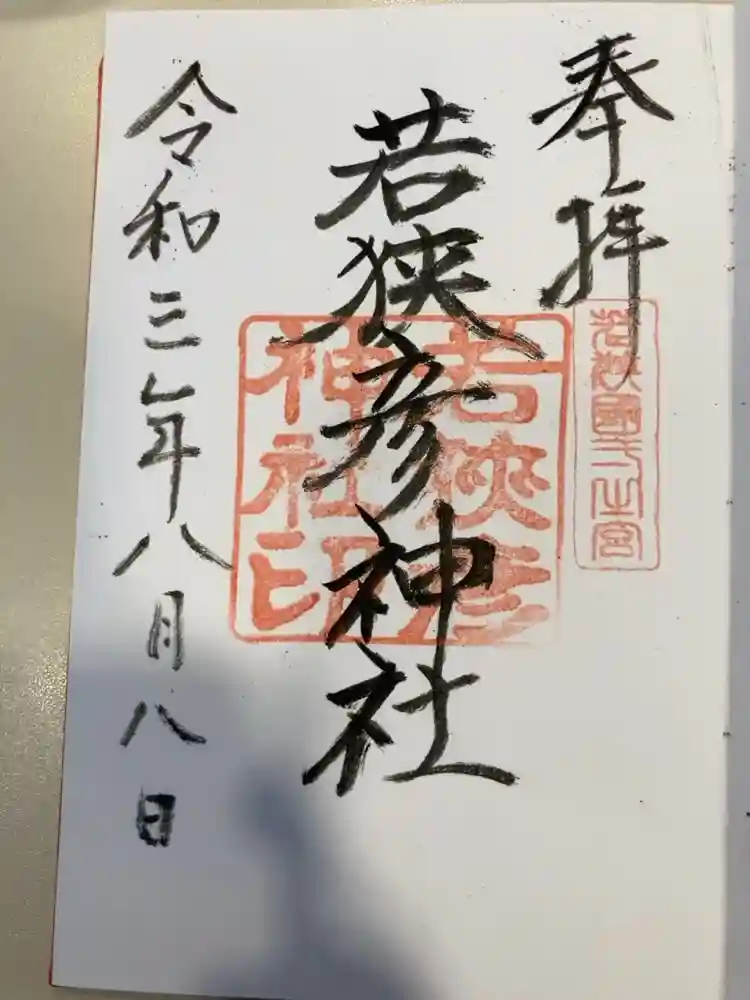 奉拝
若狭国一之宮
若狭彦神社
若狭彦
神社印
令和三年八月八日